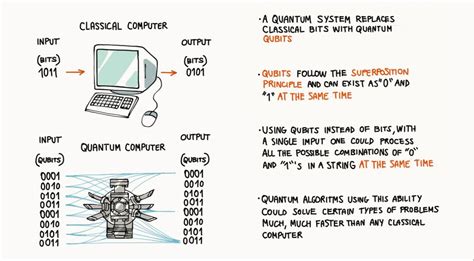 CLASSICAL COMPUTER
INPUT
OUTPUT
(BITS)
(BITS)
1011
0101
INPUT
OUTPUT
QUANTUM COMPUTER
(QUBITS)
(QUBITS)
0001
0001
0010
0010
0101
0101
0001
0001
0010
0010
0101
0101
0011
0011
• A QUANTUM SYSTEM REPLACES
CLASSICAL BITS WITH QUANTUM
QUBITS
• QUBITS FOLLOW THE SUPERPOSITION
PRINCIPLE AND CAN EXIST AS "0" AND
"1" AT THE SAME TIME
• USING QUBITS INSTEAD OF BITS, WITH
A SINGLE INPUT ONE COULD PROCESS
ALL THE POSSIBLE COMBINATIONS OF "0"
AND "1"'S IN A STRING AT THE SAME TIME
• QUANTUM ALGORITMS USING THIS ABILITY
COULD SOLVE CERTAIN TYPES OF PROBLEMS
MUCH, MUCH FASTER THAN ANY CLASSICAL
COMPUTER